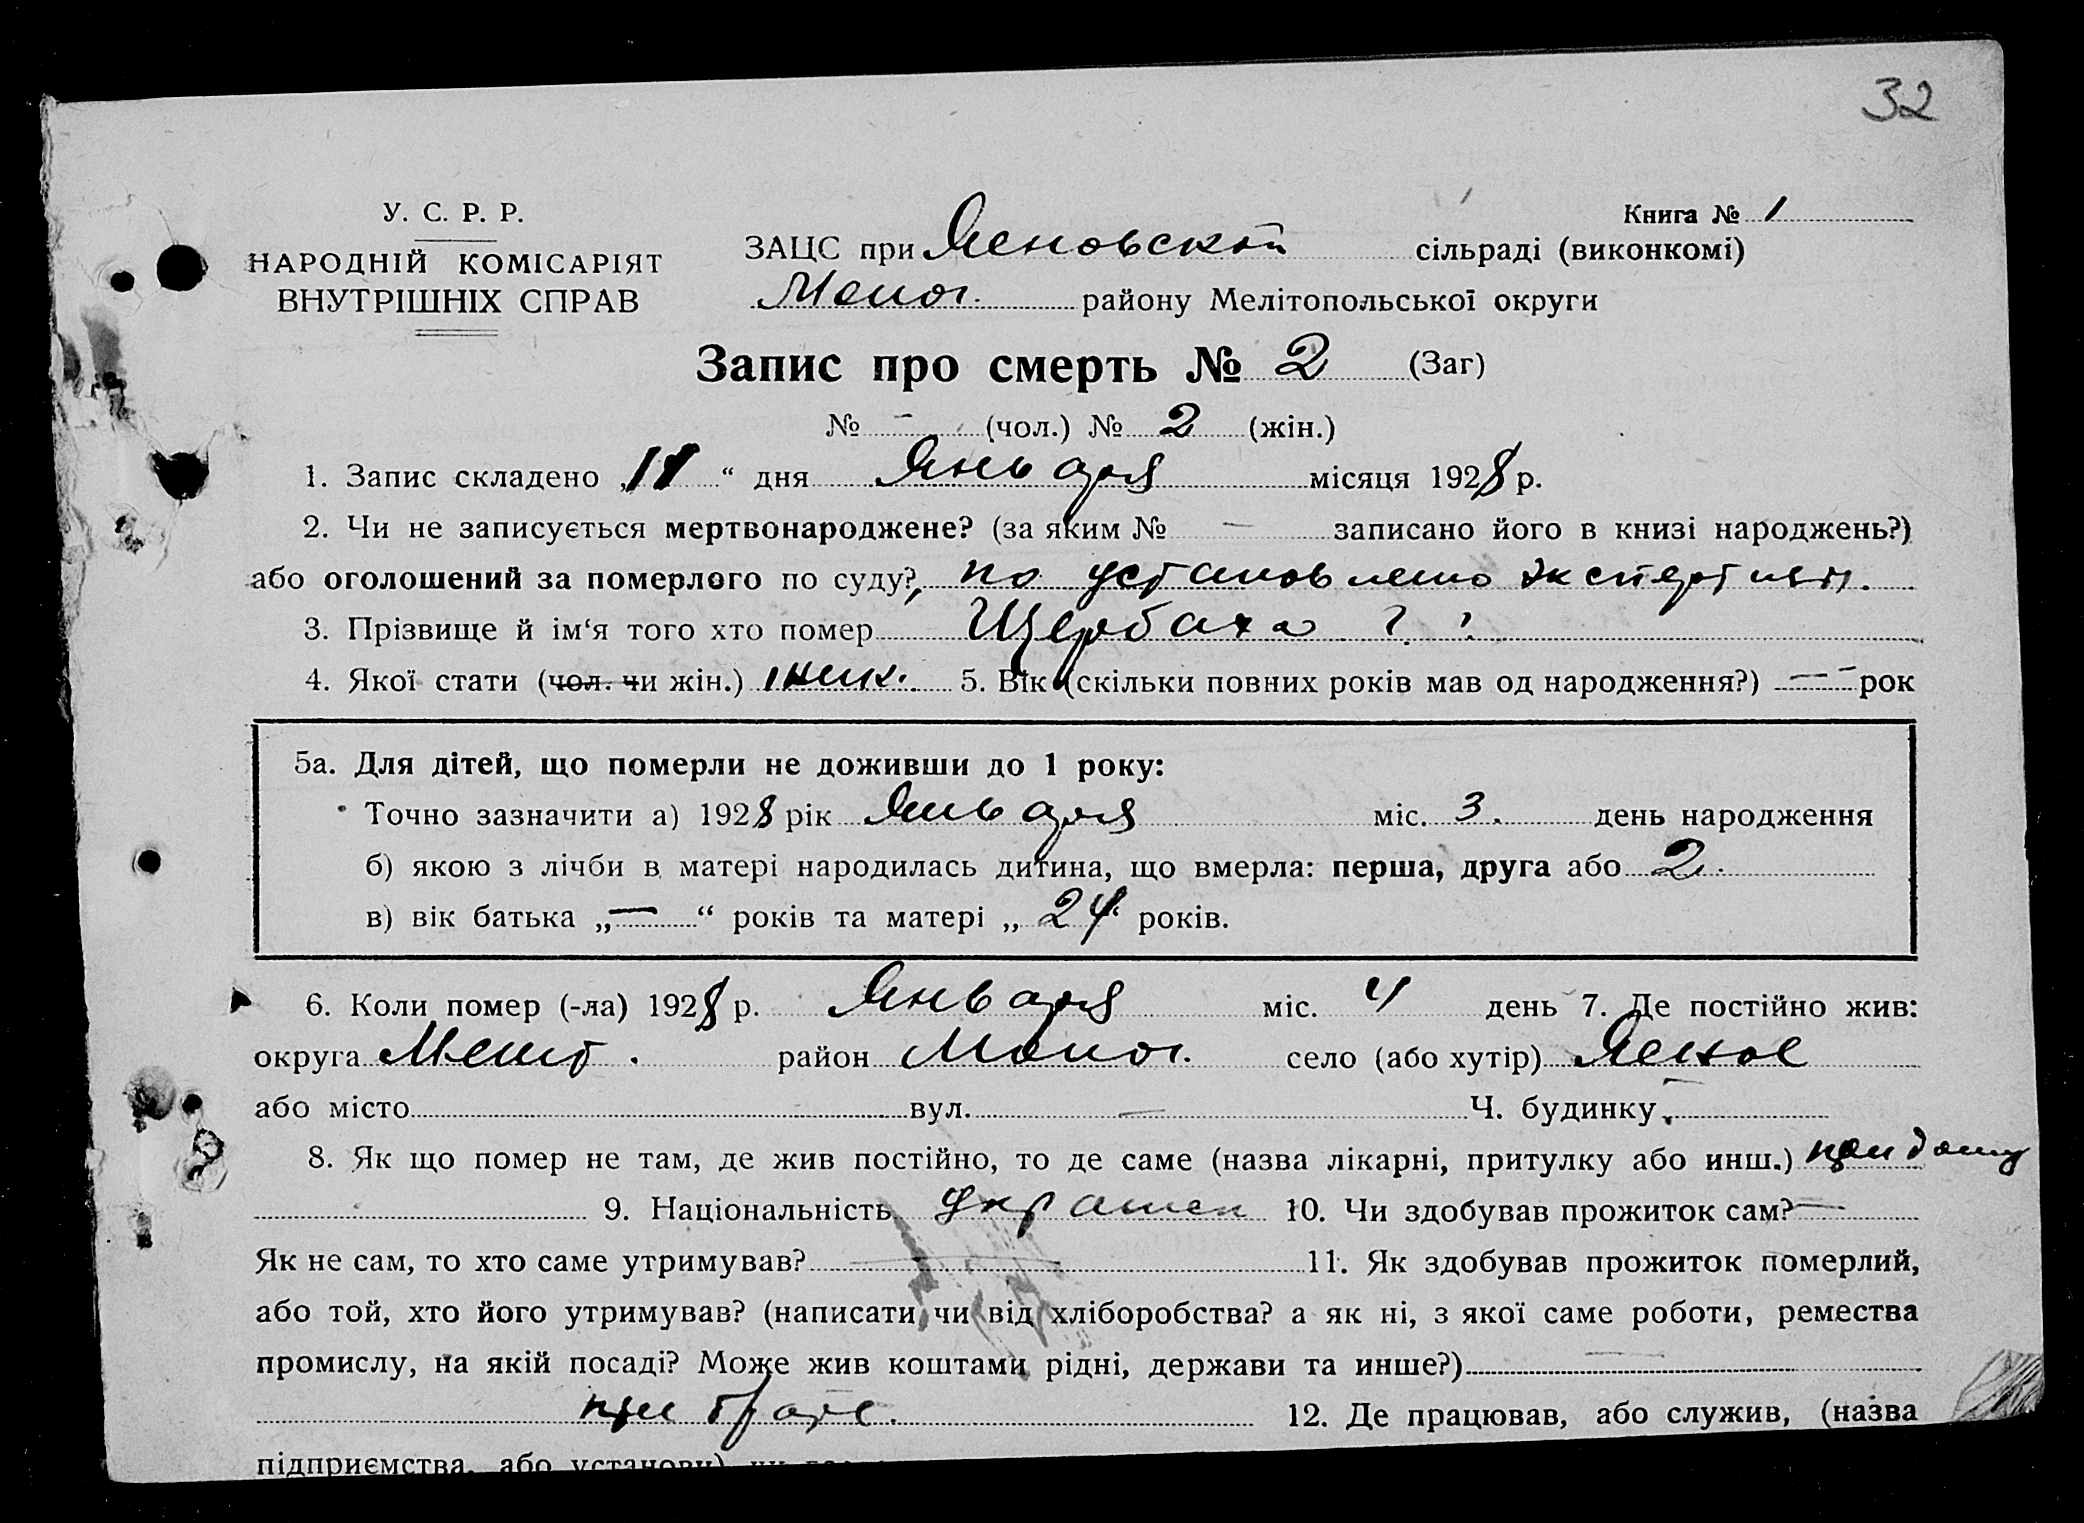 32
У. С. Р. Р.
НАРОДНІЙ КОМІСАРІЯТ
ВНУТРІШНІХ СПРАВ
Книга № 1
ЗАЦС при Ясновской сільраді (виконкомі)
району Мелітопольської округи
Запис про смерть № 2 (Заг)
№ - (чол.) № 2 (жін.)
1. Запис складено „11“ дня Января місяця 1928 р.
2. Чи не записується мертвонароджене? (за яким № — записано його в книзі народжень?)
або оголошений за померлого по суду? по установлено
3. Прізвище й ім‘я того хто помер Щербаха ? ?
4. Якої стати (чол. чи жін.) 5. Вік (скільки повних років мав од народження?) — рок
5а. Для дітей, що померли не доживши до 1 року:
Точно зазначити а) 1928 рік Января міс. 3. день народження
б) якою з лічби в матері народилась дитина, що вмерла: перша, друга або 2.
в) вік батька „—“ років та матері „24“ років.
6. Коли помер (-ла) 1928 р. Января міс. 4 день 7. Де постійно жив:
округа Мелит. район село (або хутір) Ясное
або місто вул. — Ч. будинку
8. Як що помер не там, де жив постійно, то де саме (назва лікарні, притулку або инш.)
9. Національність 10. Чи здобував прожиток сам? —
Як не сам, то хто саме утримував? — 11. Як здобував прожиток померлий,
або той, хто його утримував? (написати чи від хліборобства? а як ні, з якої саме роботи, ремества
промислу, на якій посаді? Може жив коштами рідні, держави та инше?) —
при брате. 12. Де працював, або служив, (назва
підприємства, або установи)